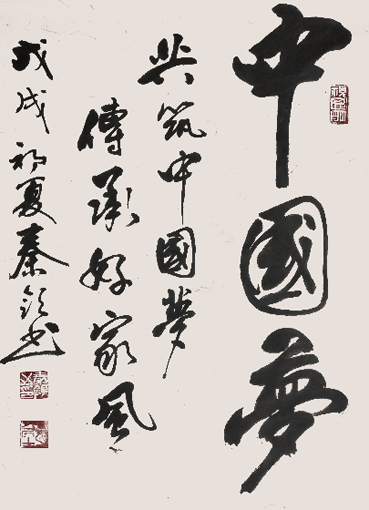 中國夢
共筑中國夢
傳承好家風
戊戌初夏秦領书